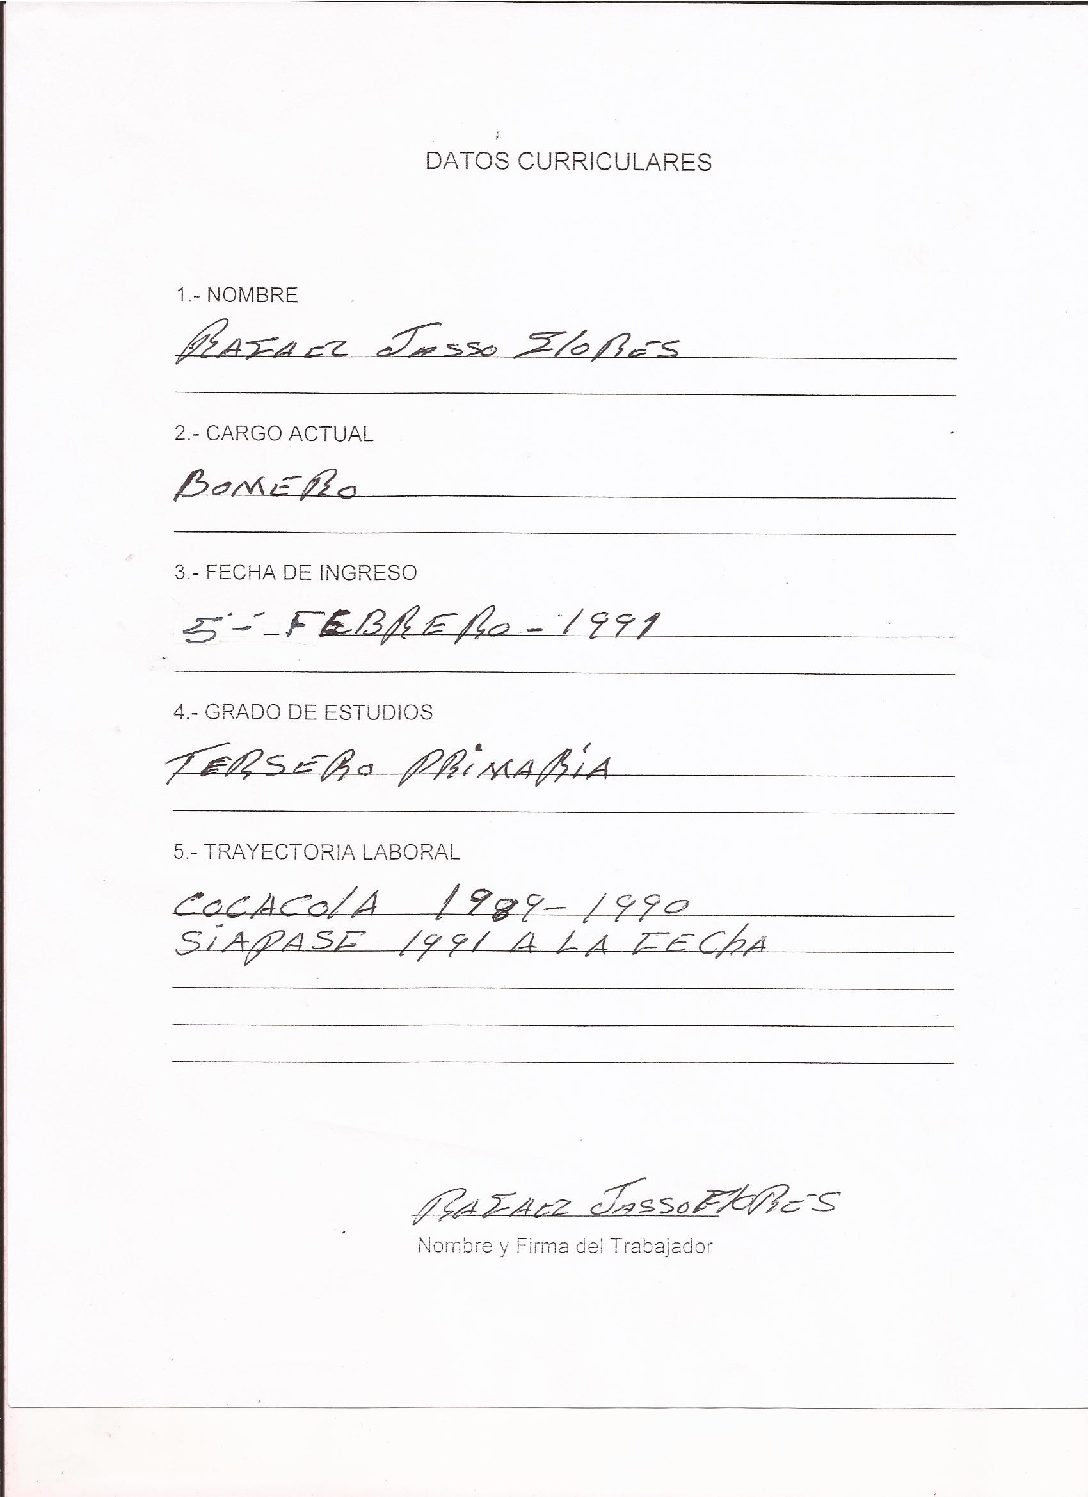 DATOS CURRICULARES
1.- NOMBRE
RAFAEL JASSO FlORES
2.- CARGO ACTUAL
BOMERO
3.- FECHA DE INGRESO
5- FEBRERO - 1991
4.- GRADO DE ESTUDIOS
TERSERO PRiMARiA
5.- TRAYECTORIA LABORAL
COCACOlA 1989-1990
SiAPASE 1991 A LA FEChA
RAFAEL JASSO FlORES
Nombre y Firma del Trabajador